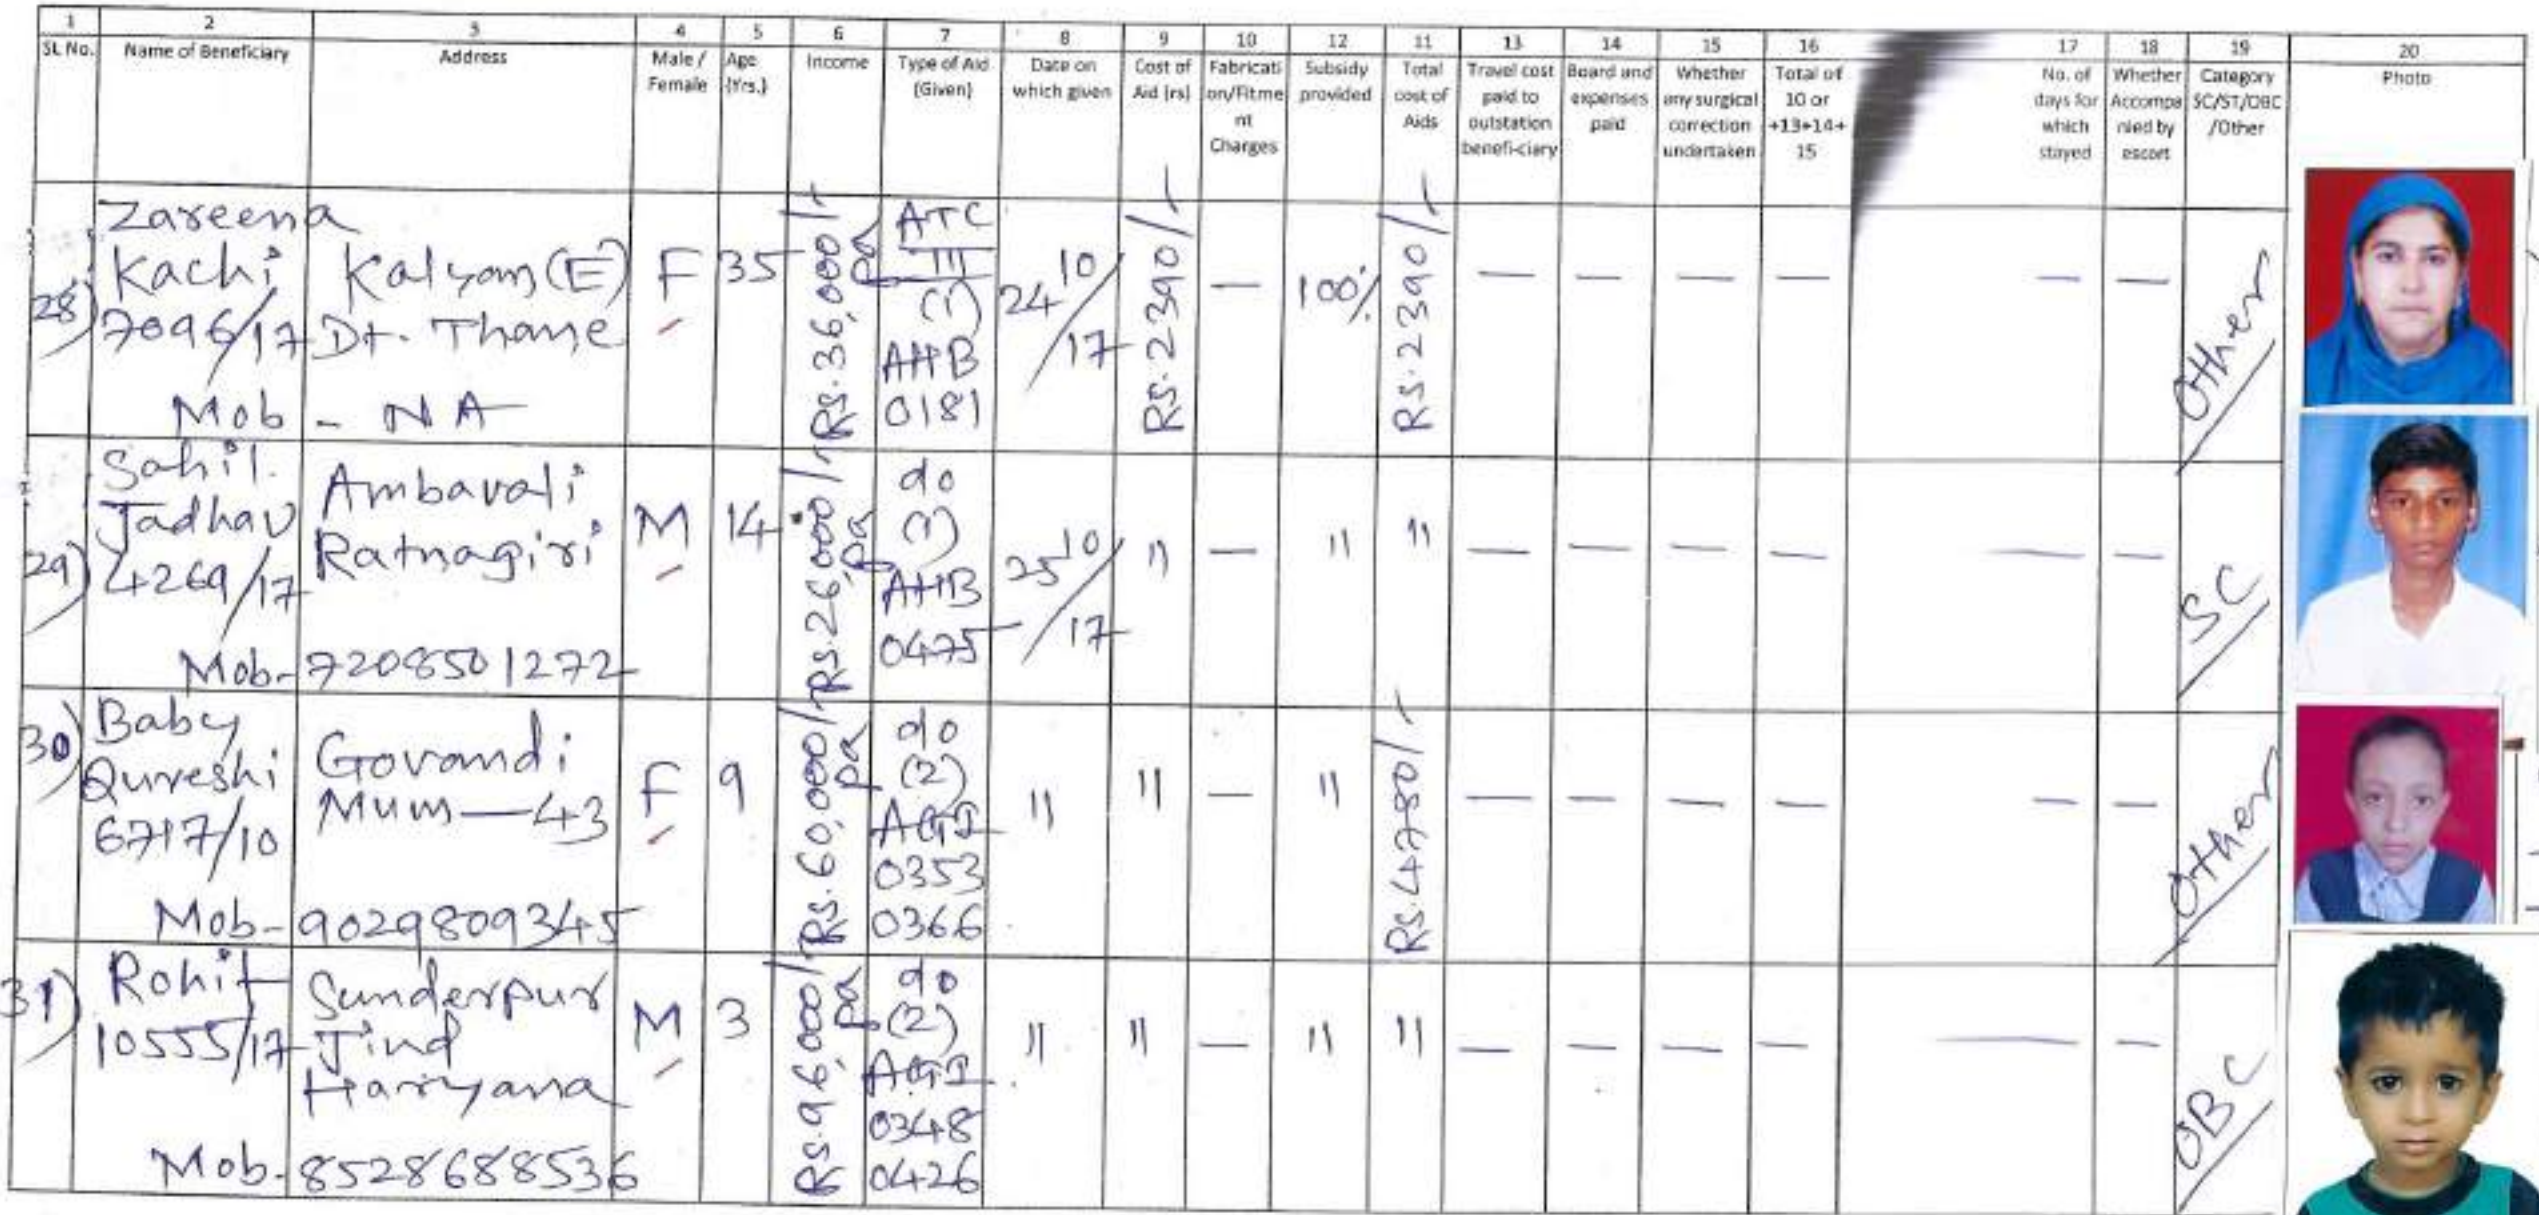 1 2 3 4 5 6 7 8 9 10 12 11 13 14 15 16 17 18 19 20
SL No. Name of Beneficiary Address Male / Female Age (Yrs.) Income Type of Aid (Given) Date on which given Cost of Aid (rs) Fabricati on/Fitme nt Charges Subsidy provided Total cost of Aids Travel cost paid to outstation benefi-ciary Board and expenses paid Whether any surgical correction undertaken Total of 10 or +13+14+ 15 No. of days for which stayed Whether Accompa nied by escort Category SC/ST/OBC /Other Photo
28) Zareena Kachi 7096/17 Kalyan (E) Dt. Thane F 35 Rs. 36,000/- pa ATC III (1) AHB 0181 24/10/17 Rs. 2390/- — 100% Rs. 2390/- — — — — — — Other
Mob - NA
29) Sahil. Jadhav 4269/17 Ambavali Ratnagiri M 14 Rs. 26,000/- pa do (1) AHB 0475 25/10/17 " — " " — — — — — — SC
Mob- 7208501272
30) Baby Qureshi 6717/10 Govandi Mum—43 F 9 Rs. 60,000/- pa do (2) AGI 0353 0366 " " — " Rs. 4780/- — — — — — — Other
Mob- 9029809345
31) Rohit 10555/17 Sunderpur Jind Haryana M 3 Rs. 96,000/- pa do (2) AGI 0348 0426 " " — " " — — — — — — OBC
Mob- 8528688536